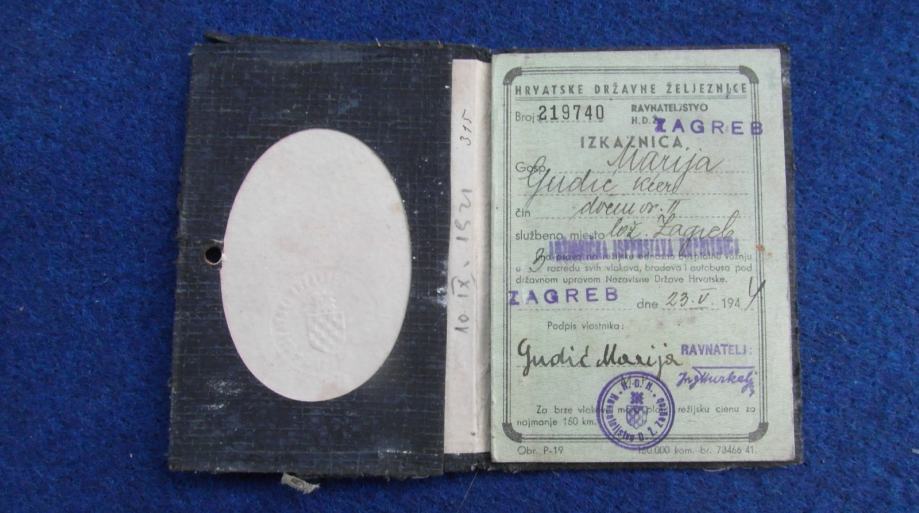 10. IX. 1921 315
HRVATSKE DRŽAVNE ŽELJEZNICE
Broj: 219740
RAVNATELJSTVO
H.D.Ž. ZAGREB
IZKAZNICA
Gosp. Marija
Gudić
čin
službeno mjesto lož. Zagreb
vožnju
u 3 razredu svih vlakova, brodova i autobusa pod
državnom upravom Nezavisne Države Hrvatske.
ZAGREB dne 23. V. 1944
Podpis vlastnika:
Gudić Marija
RAVNATELJ:
Za brze vlakove režijsku cienu za
najmanje 160 km.
Obr. P-19 kom.-br. 73466 41.